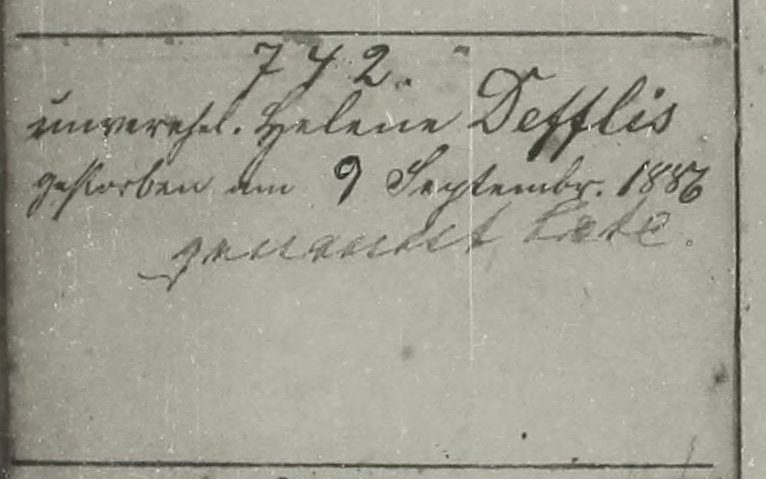 742.
unverehel. Helene Defflis
gestorben am 9 Septembr. 1886
genannt